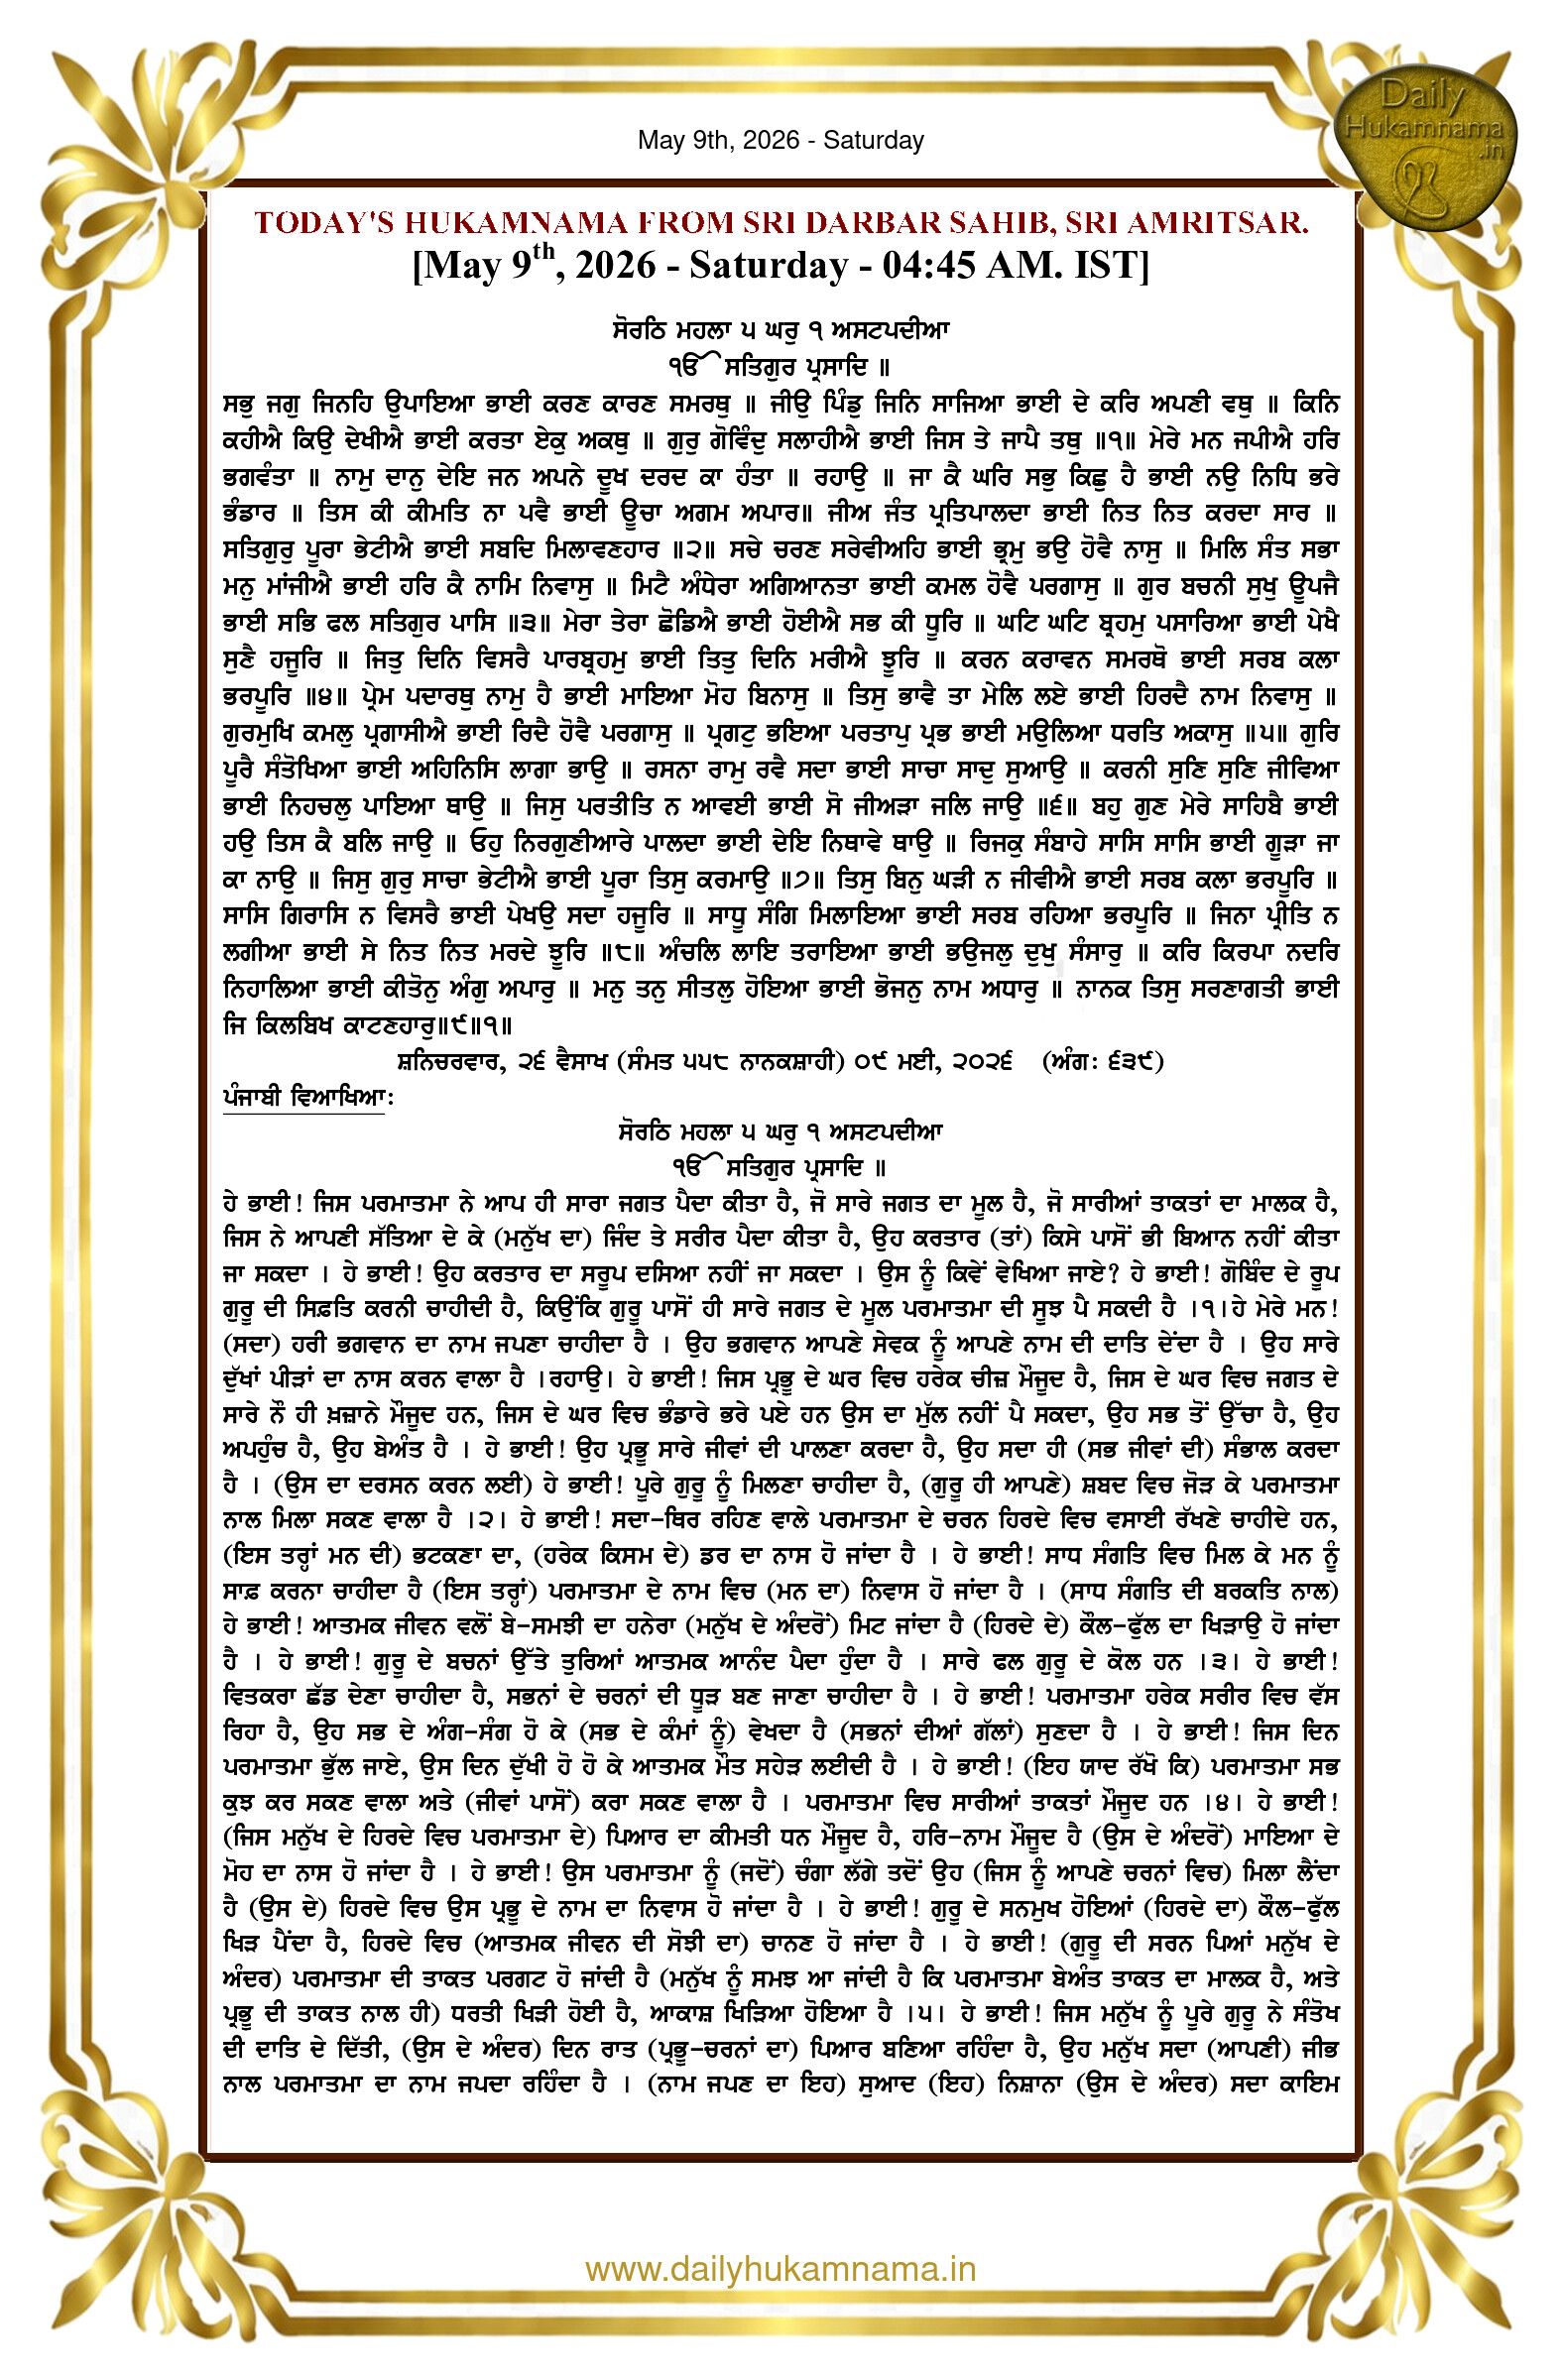 Daily
Hukamnama
.in
May 9th, 2026 - Saturday
TODAY'S HUKAMNAMA FROM SRI DARBAR SAHIB, SRI AMRITSAR.
[May 9th, 2026 - Saturday - 04:45 AM. IST]
ਸੋਰਠਿ ਮਹਲਾ ੫ ਘਰੁ ੧ ਅਸਟਪਦੀਆ
ੴ ਸਤਿਗੁਰ ਪ੍ਰਸਾਦਿ ॥
ਸਭੁ ਜਗੁ ਜਿਨਹਿ ਉਪਾਇਆ ਭਾਈ ਕਰਣ ਕਾਰਣ ਸਮਰਥੁ ॥ ਜੀਉ ਪਿੰਡੁ ਜਿਨਿ ਸਾਜਿਆ ਭਾਈ ਦੇ ਕਰਿ ਅਪਣੀ ਵਥੁ ॥ ਕਿਨਿ
ਕਹੀਐ ਕਿਉ ਦੇਖੀਐ ਭਾਈ ਕਰਤਾ ਏਕੁ ਅਕਥੁ ॥ ਗੁਰੁ ਗੋਵਿੰਦੁ ਸਲਾਹੀਐ ਭਾਈ ਜਿਸ ਤੇ ਜਾਪੈ ਤਥੁ ॥੧॥ ਮੇਰੇ ਮਨ ਜਪੀਐ ਹਰਿ
ਭਗਵੰਤਾ ॥ ਨਾਮੁ ਦਾਨੁ ਦੇਇ ਜਨ ਅਪਨੇ ਦੂਖ ਦਰਦ ਕਾ ਹੰਤਾ ॥ ਰਹਾਉ ॥ ਜਾ ਕੈ ਘਰਿ ਸਭੁ ਕਿਛੁ ਹੈ ਭਾਈ ਨਉ ਨਿਧਿ ਭਰੇ
ਭੰਡਾਰ ॥ ਤਿਸ ਕੀ ਕੀਮਤਿ ਨਾ ਪਵੈ ਭਾਈ ਊਚਾ ਅਗਮ ਅਪਾਰ॥ ਜੀਅ ਜੰਤ ਪ੍ਰਤਿਪਾਲਦਾ ਭਾਈ ਨਿਤ ਨਿਤ ਕਰਦਾ ਸਾਰ ॥
ਸਤਿਗੁਰੁ ਪੂਰਾ ਭੇਟੀਐ ਭਾਈ ਸਬਦਿ ਮਿਲਾਵਣਹਾਰ ॥੨॥ ਸਚੇ ਚਰਣ ਸਰੇਵੀਅਹਿ ਭਾਈ ਭ੍ਰਮੁ ਭਉ ਹੋਵੈ ਨਾਸੁ ॥ ਮਿਲਿ ਸੰਤ ਸਭਾ
ਮਨੁ ਮਾਂਜੀਐ ਭਾਈ ਹਰਿ ਕੈ ਨਾਮਿ ਨਿਵਾਸੁ ॥ ਮਿਟੈ ਅੰਧੇਰਾ ਅਗਿਆਨਤਾ ਭਾਈ ਕਮਲ ਹੋਵੈ ਪਰਗਾਸੁ ॥ ਗੁਰ ਬਚਨੀ ਸੁਖੁ ਊਪਜੈ
ਭਾਈ ਸਭਿ ਫਲ ਸਤਿਗੁਰ ਪਾਸਿ ॥੩॥ ਮੇਰਾ ਤੇਰਾ ਛੋਡਿਐ ਭਾਈ ਹੋਈਐ ਸਭ ਕੀ ਧੂਰਿ ॥ ਘਟਿ ਘਟਿ ਬ੍ਰਹਮੁ ਪਸਾਰਿਆ ਭਾਈ ਪੇਖੈ
ਸੁਣੈ ਹਜੂਰਿ ॥ ਜਿਤੁ ਦਿਨਿ ਵਿਸਰੈ ਪਾਰਬ੍ਰਹਮੁ ਭਾਈ ਤਿਤੁ ਦਿਨਿ ਮਰੀਐ ਝੂਰਿ ॥ ਕਰਨ ਕਰਾਵਨ ਸਮਰਥੋ ਭਾਈ ਸਰਬ ਕਲਾ
ਭਰਪੂਰਿ ॥੪॥ ਪ੍ਰੇਮ ਪਦਾਰਥੁ ਨਾਮੁ ਹੈ ਭਾਈ ਮਾਇਆ ਮੋਹ ਬਿਨਾਸੁ ॥ ਤਿਸੁ ਭਾਵੈ ਤਾ ਮੇਲਿ ਲਏ ਭਾਈ ਹਿਰਦੈ ਨਾਮ ਨਿਵਾਸੁ ॥
ਗੁਰਮੁਖਿ ਕਮਲੁ ਪ੍ਰਗਾਸੀਐ ਭਾਈ ਰਿਦੈ ਹੋਵੈ ਪਰਗਾਸੁ ॥ ਪ੍ਰਗਟੁ ਭਇਆ ਪਰਤਾਪੁ ਪ੍ਰਭ ਭਾਈ ਮਉਲਿਆ ਧਰਤਿ ਅਕਾਸੁ ॥੫॥ ਗੁਰਿ
ਪੂਰੈ ਸੰਤੋਖਿਆ ਭਾਈ ਅਹਿਨਿਸਿ ਲਾਗਾ ਭਾਉ ॥ ਰਸਨਾ ਰਾਮੁ ਰਵੈ ਸਦਾ ਭਾਈ ਸਾਚਾ ਸਾਦੁ ਸੁਆਉ ॥ ਕਰਨੀ ਸੁਣਿ ਸੁਣਿ ਜੀਵਿਆ
ਭਾਈ ਨਿਹਚਲੁ ਪਾਇਆ ਥਾਉ ॥ ਜਿਸੁ ਪਰਤੀਤਿ ਨ ਆਵਈ ਭਾਈ ਸੋ ਜੀਅੜਾ ਜਲਿ ਜਾਉ ॥੬॥ ਬਹੁ ਗੁਣ ਮੇਰੇ ਸਾਹਿਬੈ ਭਾਈ
ਹਉ ਤਿਸ ਕੈ ਬਲਿ ਜਾਉ ॥ ਓਹੁ ਨਿਰਗੁਣੀਆਰੇ ਪਾਲਦਾ ਭਾਈ ਦੇਇ ਨਿਥਾਵੇ ਥਾਉ ॥ ਰਿਜਕੁ ਸੰਬਾਹੇ ਸਾਸਿ ਸਾਸਿ ਭਾਈ ਗੂੜਾ ਜਾ
ਕਾ ਨਾਉ ॥ ਜਿਸੁ ਗੁਰੁ ਸਾਚਾ ਭੇਟੀਐ ਭਾਈ ਪੂਰਾ ਤਿਸੁ ਕਰਮਾਉ ॥੭॥ ਤਿਸੁ ਬਿਨੁ ਘੜੀ ਨ ਜੀਵੀਐ ਭਾਈ ਸਰਬ ਕਲਾ ਭਰਪੂਰਿ ॥
ਸਾਸਿ ਗਿਰਾਸਿ ਨ ਵਿਸਰੈ ਭਾਈ ਪੇਖਉ ਸਦਾ ਹਜੂਰਿ ॥ ਸਾਧੂ ਸੰਗਿ ਮਿਲਾਇਆ ਭਾਈ ਸਰਬ ਰਹਿਆ ਭਰਪੂਰਿ ॥ ਜਿਨਾ ਪ੍ਰੀਤਿ ਨ
ਲਗੀਆ ਭਾਈ ਸੇ ਨਿਤ ਨਿਤ ਮਰਦੇ ਝੂਰਿ ॥੮॥ ਅੰਚਲਿ ਲਾਇ ਤਰਾਇਆ ਭਾਈ ਭਉਜਲੁ ਦੁਖੁ ਸੰਸਾਰੁ ॥ ਕਰਿ ਕਿਰਪਾ ਨਦਰਿ
ਨਿਹਾਲਿਆ ਭਾਈ ਕੀਤੋਨੁ ਅੰਗੁ ਅਪਾਰੁ ॥ ਮਨੁ ਤਨੁ ਸੀਤਲੁ ਹੋਇਆ ਭਾਈ ਭੋਜਨੁ ਨਾਮ ਅਧਾਰੁ ॥ ਨਾਨਕ ਤਿਸੁ ਸਰਣਾਗਤੀ ਭਾਈ
ਜਿ ਕਿਲਬਿਖ ਕਾਟਣਹਾਰੁ॥੯॥੧॥
ਸ਼ਨਿਚਰਵਾਰ, ੨੬ ਵੈਸਾਖ (ਸੰਮਤ ੫੫੮ ਨਾਨਕਸ਼ਾਹੀ) ੦੯ ਮਈ, ੨੦੨੬ (ਅੰਗ: ੬੩੯)
ਪੰਜਾਬੀ ਵਿਆਖਿਆ:
ਸੋਰਠਿ ਮਹਲਾ ੫ ਘਰੁ ੧ ਅਸਟਪਦੀਆ
ੴ ਸਤਿਗੁਰ ਪ੍ਰਸਾਦਿ ॥
ਹੇ ਭਾਈ! ਜਿਸ ਪਰਮਾਤਮਾ ਨੇ ਆਪ ਹੀ ਸਾਰਾ ਜਗਤ ਪੈਦਾ ਕੀਤਾ ਹੈ, ਜੋ ਸਾਰੇ ਜਗਤ ਦਾ ਮੂਲ ਹੈ, ਜੋ ਸਾਰੀਆਂ ਤਾਕਤਾਂ ਦਾ ਮਾਲਕ ਹੈ,
ਜਿਸ ਨੇ ਆਪਣੀ ਸੱਤਿਆ ਦੇ ਕੇ (ਮਨੁੱਖ ਦਾ) ਜਿੰਦ ਤੇ ਸਰੀਰ ਪੈਦਾ ਕੀਤਾ ਹੈ, ਉਹ ਕਰਤਾਰ (ਤਾਂ) ਕਿਸੇ ਪਾਸੋਂ ਭੀ ਬਿਆਨ ਨਹੀਂ ਕੀਤਾ
ਜਾ ਸਕਦਾ । ਹੇ ਭਾਈ! ਉਹ ਕਰਤਾਰ ਦਾ ਸਰੂਪ ਦਸਿਆ ਨਹੀਂ ਜਾ ਸਕਦਾ । ਉਸ ਨੂੰ ਕਿਵੇਂ ਵੇਖਿਆ ਜਾਏ? ਹੇ ਭਾਈ! ਗੋਬਿੰਦ ਦੇ ਰੂਪ
ਗੁਰੂ ਦੀ ਸਿਫ਼ਤਿ ਕਰਨੀ ਚਾਹੀਦੀ ਹੈ, ਕਿਉਂਕਿ ਗੁਰੂ ਪਾਸੋਂ ਹੀ ਸਾਰੇ ਜਗਤ ਦੇ ਮੂਲ ਪਰਮਾਤਮਾ ਦੀ ਸੂਝ ਪੈ ਸਕਦੀ ਹੈ ।੧।ਹੇ ਮੇਰੇ ਮਨ!
(ਸਦਾ) ਹਰੀ ਭਗਵਾਨ ਦਾ ਨਾਮ ਜਪਣਾ ਚਾਹੀਦਾ ਹੈ । ਉਹ ਭਗਵਾਨ ਆਪਣੇ ਸੇਵਕ ਨੂੰ ਆਪਣੇ ਨਾਮ ਦੀ ਦਾਤਿ ਦੇਂਦਾ ਹੈ । ਉਹ ਸਾਰੇ
ਦੁੱਖਾਂ ਪੀੜਾਂ ਦਾ ਨਾਸ ਕਰਨ ਵਾਲਾ ਹੈ ।ਰਹਾਉ। ਹੇ ਭਾਈ! ਜਿਸ ਪ੍ਰਭੂ ਦੇ ਘਰ ਵਿਚ ਹਰੇਕ ਚੀਜ਼ ਮੌਜੂਦ ਹੈ, ਜਿਸ ਦੇ ਘਰ ਵਿਚ ਜਗਤ ਦੇ
ਸਾਰੇ ਨੌ ਹੀ ਖ਼ਜ਼ਾਨੇ ਮੌਜੂਦ ਹਨ, ਜਿਸ ਦੇ ਘਰ ਵਿਚ ਭੰਡਾਰੇ ਭਰੇ ਪਏ ਹਨ ਉਸ ਦਾ ਮੁੱਲ ਨਹੀਂ ਪੈ ਸਕਦਾ, ਉਹ ਸਭ ਤੋਂ ਉੱਚਾ ਹੈ, ਉਹ
ਅਪਹੁੰਚ ਹੈ, ਉਹ ਬੇਅੰਤ ਹੈ । ਹੇ ਭਾਈ! ਉਹ ਪ੍ਰਭੂ ਸਾਰੇ ਜੀਵਾਂ ਦੀ ਪਾਲਣਾ ਕਰਦਾ ਹੈ, ਉਹ ਸਦਾ ਹੀ (ਸਭ ਜੀਵਾਂ ਦੀ) ਸੰਭਾਲ ਕਰਦਾ
ਹੈ । (ਉਸ ਦਾ ਦਰਸਨ ਕਰਨ ਲਈ) ਹੇ ਭਾਈ! ਪੂਰੇ ਗੁਰੂ ਨੂੰ ਮਿਲਣਾ ਚਾਹੀਦਾ ਹੈ, (ਗੁਰੂ ਹੀ ਆਪਣੇ) ਸ਼ਬਦ ਵਿਚ ਜੋੜ ਕੇ ਪਰਮਾਤਮਾ
ਨਾਲ ਮਿਲਾ ਸਕਣ ਵਾਲਾ ਹੈ ।੨। ਹੇ ਭਾਈ! ਸਦਾ-ਥਿਰ ਰਹਿਣ ਵਾਲੇ ਪਰਮਾਤਮਾ ਦੇ ਚਰਨ ਹਿਰਦੇ ਵਿਚ ਵਸਾਈ ਰੱਖਣੇ ਚਾਹੀਦੇ ਹਨ,
(ਇਸ ਤਰ੍ਹਾਂ ਮਨ ਦੀ) ਭਟਕਣਾ ਦਾ, (ਹਰੇਕ ਕਿਸਮ ਦੇ) ਡਰ ਦਾ ਨਾਸ ਹੋ ਜਾਂਦਾ ਹੈ । ਹੇ ਭਾਈ! ਸਾਧ ਸੰਗਤਿ ਵਿਚ ਮਿਲ ਕੇ ਮਨ ਨੂੰ
ਸਾਫ਼ ਕਰਨਾ ਚਾਹੀਦਾ ਹੈ (ਇਸ ਤਰ੍ਹਾਂ) ਪਰਮਾਤਮਾ ਦੇ ਨਾਮ ਵਿਚ (ਮਨ ਦਾ) ਨਿਵਾਸ ਹੋ ਜਾਂਦਾ ਹੈ । (ਸਾਧ ਸੰਗਤਿ ਦੀ ਬਰਕਤਿ ਨਾਲ)
ਹੇ ਭਾਈ! ਆਤਮਕ ਜੀਵਨ ਵਲੋਂ ਬੇ-ਸਮਝੀ ਦਾ ਹਨੇਰਾ (ਮਨੁੱਖ ਦੇ ਅੰਦਰੋਂ) ਮਿਟ ਜਾਂਦਾ ਹੈ (ਹਿਰਦੇ ਦੇ) ਕੌਲ-ਫੁੱਲ ਦਾ ਖਿੜਾਉ ਹੋ ਜਾਂਦਾ
ਹੈ । ਹੇ ਭਾਈ! ਗੁਰੂ ਦੇ ਬਚਨਾਂ ਉੱਤੇ ਤੁਰਿਆਂ ਆਤਮਕ ਆਨੰਦ ਪੈਦਾ ਹੁੰਦਾ ਹੈ । ਸਾਰੇ ਫਲ ਗੁਰੂ ਦੇ ਕੋਲ ਹਨ ।੩। ਹੇ ਭਾਈ!
ਵਿਤਕਰਾ ਛੱਡ ਦੇਣਾ ਚਾਹੀਦਾ ਹੈ, ਸਭਨਾਂ ਦੇ ਚਰਨਾਂ ਦੀ ਧੂੜ ਬਣ ਜਾਣਾ ਚਾਹੀਦਾ ਹੈ । ਹੇ ਭਾਈ! ਪਰਮਾਤਮਾ ਹਰੇਕ ਸਰੀਰ ਵਿਚ ਵੱਸ
ਰਿਹਾ ਹੈ, ਉਹ ਸਭ ਦੇ ਅੰਗ-ਸੰਗ ਹੋ ਕੇ (ਸਭ ਦੇ ਕੰਮਾਂ ਨੂੰ) ਵੇਖਦਾ ਹੈ (ਸਭਨਾਂ ਦੀਆਂ ਗੱਲਾਂ) ਸੁਣਦਾ ਹੈ । ਹੇ ਭਾਈ! ਜਿਸ ਦਿਨ
ਪਰਮਾਤਮਾ ਭੁੱਲ ਜਾਏ, ਉਸ ਦਿਨ ਦੁੱਖੀ ਹੋ ਹੋ ਕੇ ਆਤਮਕ ਮੌਤ ਸਹੇੜ ਲਈਦੀ ਹੈ । ਹੇ ਭਾਈ! (ਇਹ ਯਾਦ ਰੱਖੋ ਕਿ) ਪਰਮਾਤਮਾ ਸਭ
ਕੁਝ ਕਰ ਸਕਣ ਵਾਲਾ ਅਤੇ (ਜੀਵਾਂ ਪਾਸੋਂ) ਕਰਾ ਸਕਣ ਵਾਲਾ ਹੈ । ਪਰਮਾਤਮਾ ਵਿਚ ਸਾਰੀਆਂ ਤਾਕਤਾਂ ਮੌਜੂਦ ਹਨ ।੪। ਹੇ ਭਾਈ!
(ਜਿਸ ਮਨੁੱਖ ਦੇ ਹਿਰਦੇ ਵਿਚ ਪਰਮਾਤਮਾ ਦੇ) ਪਿਆਰ ਦਾ ਕੀਮਤੀ ਧਨ ਮੌਜੂਦ ਹੈ, ਹਰਿ-ਨਾਮ ਮੌਜੂਦ ਹੈ (ਉਸ ਦੇ ਅੰਦਰੋਂ) ਮਾਇਆ ਦੇ
ਮੋਹ ਦਾ ਨਾਸ ਹੋ ਜਾਂਦਾ ਹੈ । ਹੇ ਭਾਈ! ਉਸ ਪਰਮਾਤਮਾ ਨੂੰ (ਜਦੋਂ) ਚੰਗਾ ਲੱਗੇ ਤਦੋਂ ਉਹ (ਜਿਸ ਨੂੰ ਆਪਣੇ ਚਰਨਾਂ ਵਿਚ) ਮਿਲਾ ਲੈਂਦਾ
ਹੈ (ਉਸ ਦੇ) ਹਿਰਦੇ ਵਿਚ ਉਸ ਪ੍ਰਭੂ ਦੇ ਨਾਮ ਦਾ ਨਿਵਾਸ ਹੋ ਜਾਂਦਾ ਹੈ । ਹੇ ਭਾਈ! ਗੁਰੂ ਦੇ ਸਨਮੁਖ ਹੋਇਆਂ (ਹਿਰਦੇ ਦਾ) ਕੌਲ-ਫੁੱਲ
ਖਿੜ ਪੈਂਦਾ ਹੈ, ਹਿਰਦੇ ਵਿਚ (ਆਤਮਕ ਜੀਵਨ ਦੀ ਸੋਝੀ ਦਾ) ਚਾਨਣ ਹੋ ਜਾਂਦਾ ਹੈ । ਹੇ ਭਾਈ! (ਗੁਰੂ ਦੀ ਸਰਨ ਪਿਆਂ ਮਨੁੱਖ ਦੇ
ਅੰਦਰ) ਪਰਮਾਤਮਾ ਦੀ ਤਾਕਤ ਪਰਗਟ ਹੋ ਜਾਂਦੀ ਹੈ (ਮਨੁੱਖ ਨੂੰ ਸਮਝ ਆ ਜਾਂਦੀ ਹੈ ਕਿ ਪਰਮਾਤਮਾ ਬੇਅੰਤ ਤਾਕਤ ਦਾ ਮਾਲਕ ਹੈ, ਅਤੇ
ਪ੍ਰਭੂ ਦੀ ਤਾਕਤ ਨਾਲ ਹੀ) ਧਰਤੀ ਖਿੜੀ ਹੋਈ ਹੈ, ਆਕਾਸ਼ ਖਿੜਿਆ ਹੋਇਆ ਹੈ ।੫। ਹੇ ਭਾਈ! ਜਿਸ ਮਨੁੱਖ ਨੂੰ ਪੂਰੇ ਗੁਰੂ ਨੇ ਸੰਤੋਖ
ਦੀ ਦਾਤਿ ਦੇ ਦਿੱਤੀ, (ਉਸ ਦੇ ਅੰਦਰ) ਦਿਨ ਰਾਤ (ਪ੍ਰਭੂ-ਚਰਨਾਂ ਦਾ) ਪਿਆਰ ਬਣਿਆ ਰਹਿੰਦਾ ਹੈ, ਉਹ ਮਨੁੱਖ ਸਦਾ (ਆਪਣੀ) ਜੀਭ
ਨਾਲ ਪਰਮਾਤਮਾ ਦਾ ਨਾਮ ਜਪਦਾ ਰਹਿੰਦਾ ਹੈ । (ਨਾਮ ਜਪਣ ਦਾ ਇਹ) ਸੁਆਦ (ਇਹ) ਨਿਸ਼ਾਨਾ (ਉਸ ਦੇ ਅੰਦਰ) ਸਦਾ ਕਾਇਮ
www.dailyhukamnama.in